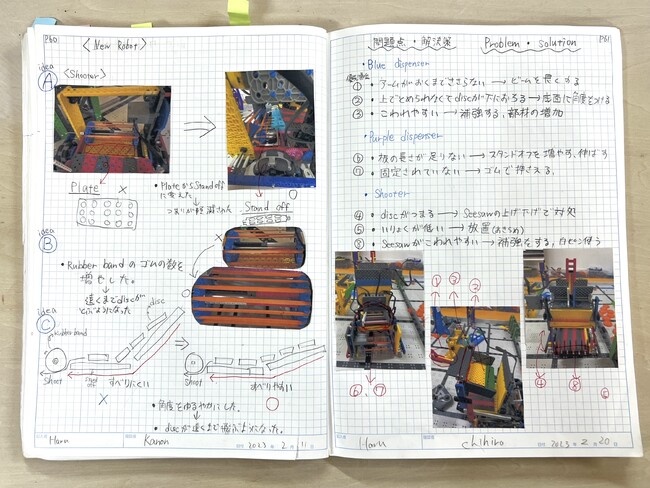 P60
<New Robot>
idea
A
<Shooter>
Plate
×
・PlateからStand off
に変えた
Stand off
○
B
・Rubber band のゴムの数を
増やした。
遠くまでdiscが
とぶようになった
×
○
idea
C
Rubber band
disc
Shoot
すべりにくい
×
Shoot
すべりやすい
○
・角度をゆるやかにした。
・discが遠くまで飛ぶようになった。
Haru
Kanon
2023 2 11
P61
問題点・解決策
Problem・solution
・Blue dispenser
① アームがおくまでささらない→ビームを長くする
② 上でとめられなくてdiscが下におちる→底面に角度をつける
③ こわれやすい→補強する,部材の増加
・Purple dispenser
⑥ 板の長さが足りない→スタンドオフを増やす,伸ばす
⑦ 固定されていない→ゴムで押さえる
・Shooter
④ discがつまる→Seesawの上げ下げで対処
⑤ いりょくが低い→放置(あきらめ)
⑧ Seesawがこわれやすい→補強をする,白ピン使う
① ③ ②
⑥,⑦
④ ⑧ ⑤
Haru
chihiro
2023 2 20